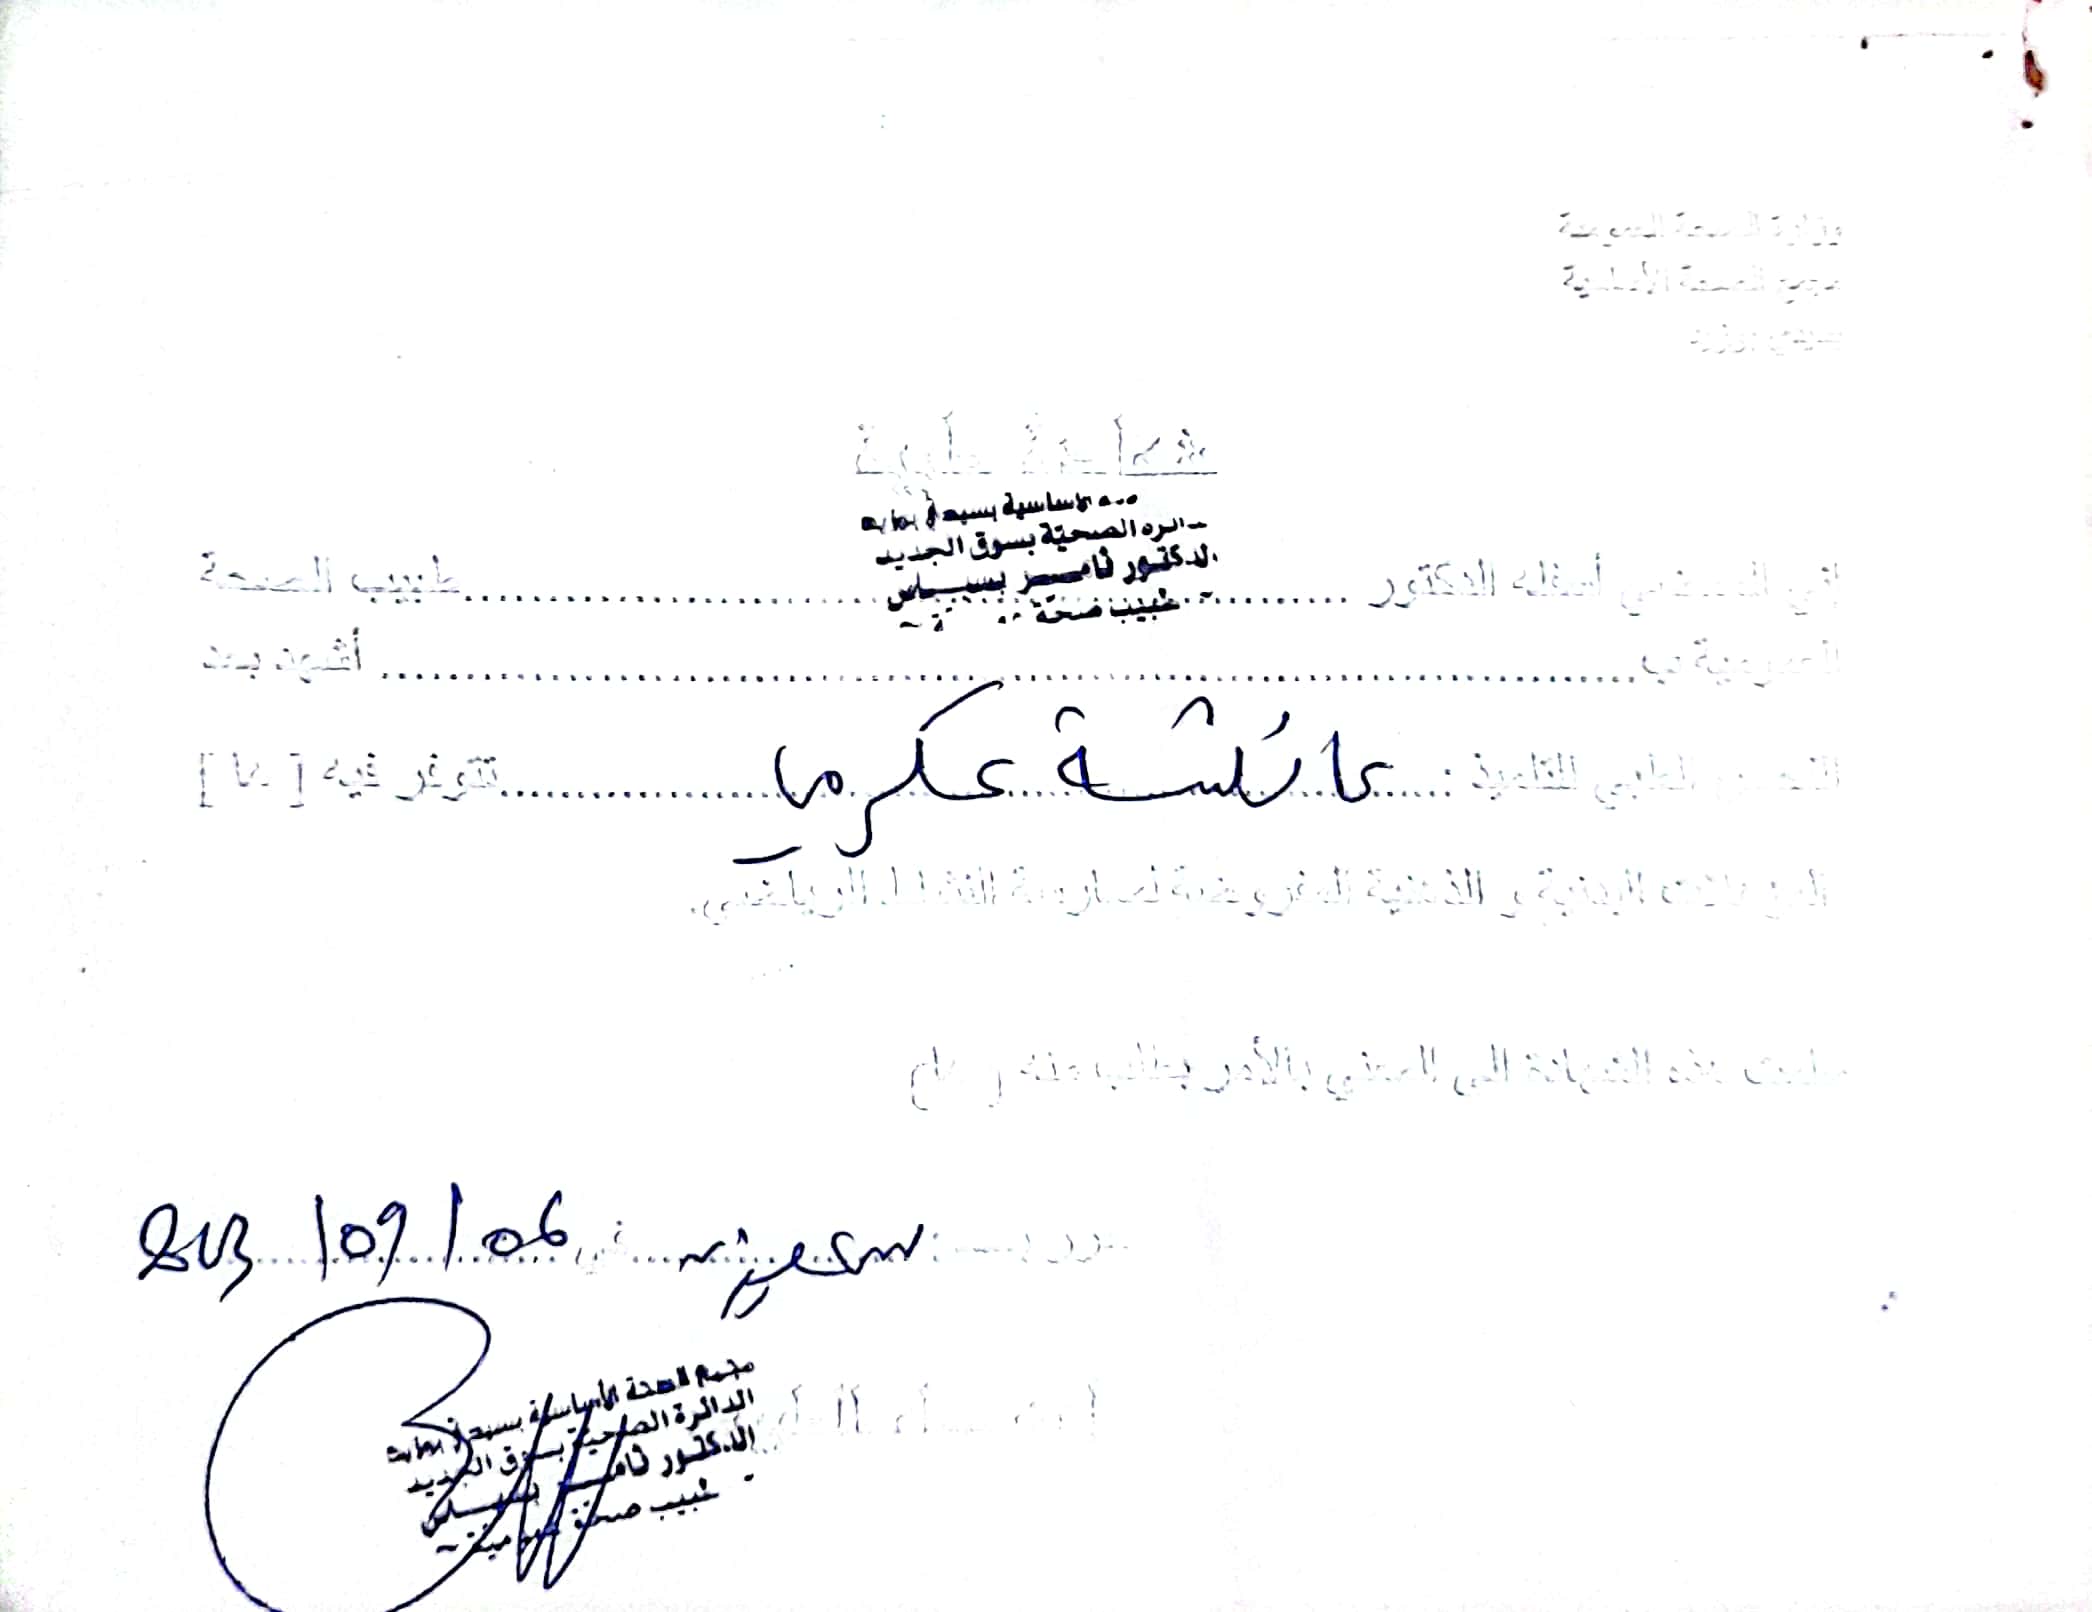 وزارة الصحة العمومية
مجمع الصحة الأساسية
شهادة طبية
الأساسية
الدائرة الصحية بسوق الجديد
الدكتور ثامر
طبيب صحة
إني الممضي أسفله الدكتور طبيب الصحة
العمومية ب أشهد بعد
الفحص الطبي للتلميذ : عائشة عكرمي تتوفر فيه [ ها ]
البدنية و الذهنية الضرورية لممارسة النشاط الرياضي.
سلمت هذه الشهادة الى المعني بالأمر بطلب منه [ ها]
في 06/09/
مجمع الصحة الأساسية
الدائرة الصحية بسوق الجديد
الدكتور ثامر
طبيب صحة عمومية